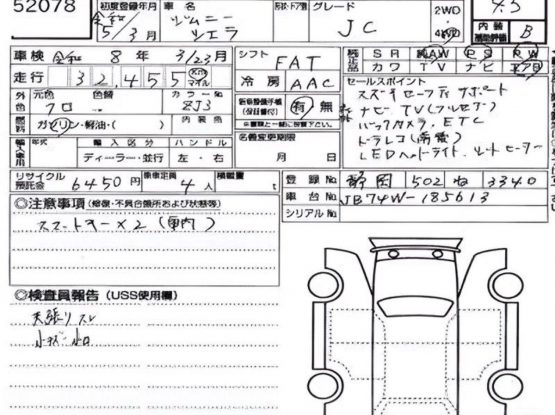 52078
初度登録年月 車名 ドア形状 グレード 2WD
令和 5/3月 ジムニー シエラ JC 4WD 4.5
内装 補助評価 B
車検 令和 8年 3/23月 シフト FAT
純正品 SR AW PS PW
カワ TV ナビ エアB
走行 32,455 Km マイル 冷房 AAC
セールスポイント
スズキセーフティサポート
ナビ TV(フルセグ)
バックカメラ、ETC
ドラレコ(前後)
LEDヘッドライト、シートヒーター
外色 元色 クロ 色替 カラーNo ZJ3
新車整備手帳(保証書付) 有 無
燃料 ガソリン・軽油・( ) 内装色
輸入車 年式 輸入区分 ハンドル
ディーラー・並行 左・右
名義変更期限
月 日
リサイクル預託金 6450円 乗車定員 4人 積載量 t
登録No. 静岡 502 ね 3340
車台No. JB74W-185613
シリアルNo.
◎注意事項 (修復・不具合箇所および状態等)
スマートキー×2 (車内)
◎検査員報告 (USS使用欄)
天張りスレ
小キズ・小凹